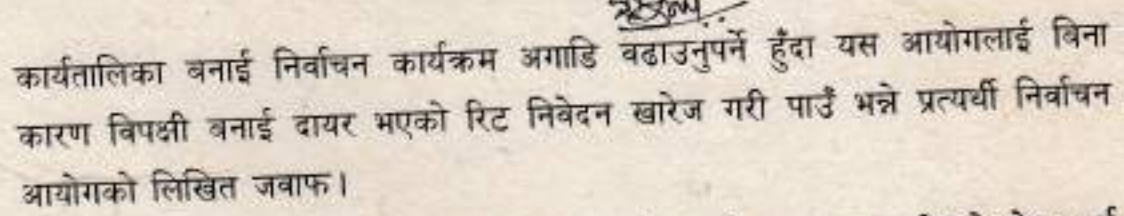 कार्यतालिका बनाई निर्वाचन कार्यक्रम अगाडि बढाउनुपर्ने हुँदा यस आयोगलाई बिना
कारण विपक्षी बनाई दायर भएको रिट निवेदन खारेज गरी पाउँ भन्ने प्रत्यर्थी निर्वाचन
आयोगको लिखित जवाफ।